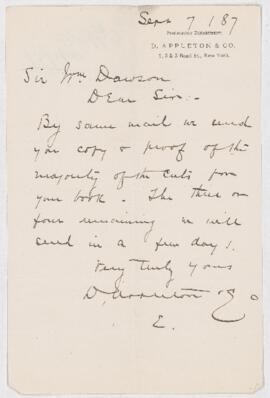 Sept 7 / 87
D. APPLETON & CO.
1, 3 & 5 Bond St., New York.
Sir Wm Dawson
Dear Sir:-
By same mail we send
you copy & proof of the
majority of the cuts for
your book. The three or
four remaining we will
send in a few days.
Very truly yours
D. Appleton & Co
E.